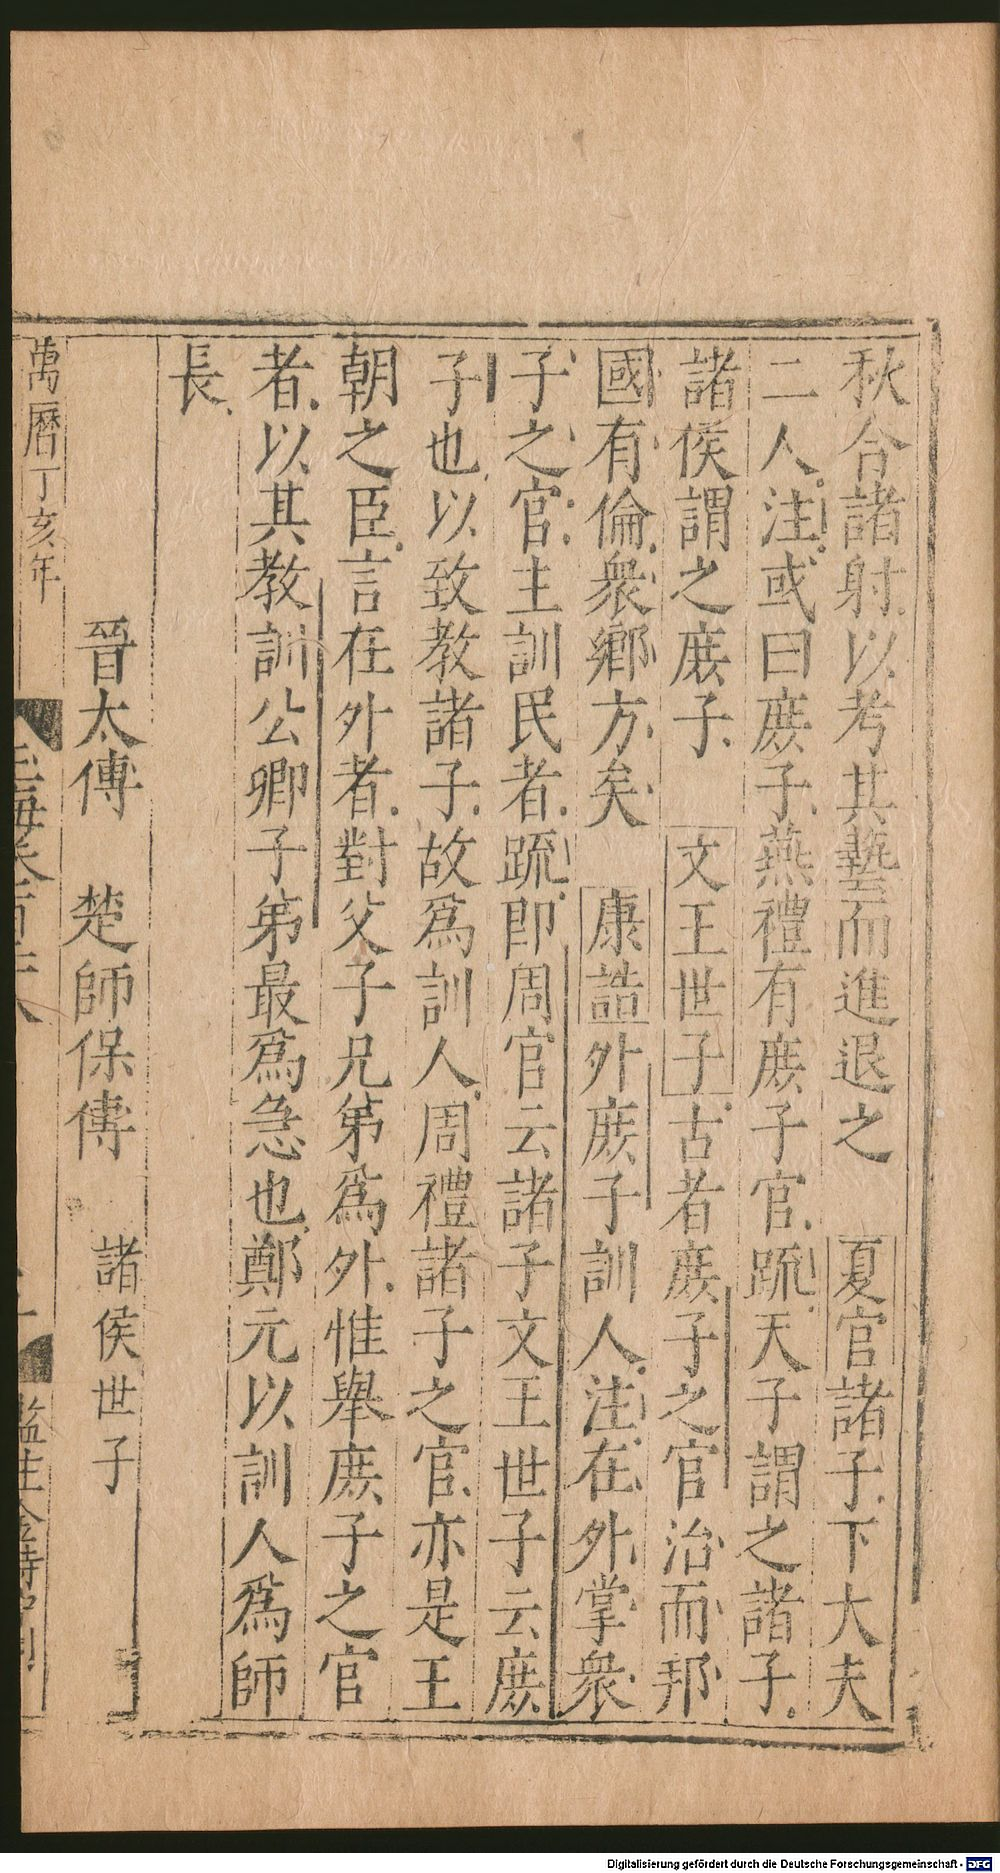 秋合諸射以考其藝而進退之　夏官諸子下大夫
二人注或曰庻子燕禮有庻子官疏天子謂之諸子
諸侯謂之庻子　文王世子古者庻子之官治而邦
國有倫衆鄉方矣　康誥外庻子訓人注在外掌衆
子之官主訓民者疏即周官云諸子文王世子云庻
子也以致教諸子故爲訓人周禮諸子之官亦是王
朝之臣言在外者對父子兄弟爲外惟舉庻子之官
者以其教訓公卿子弟最爲急也鄭元以訓人爲師
長
晉太傅　楚師保傅　諸侯世子
萬曆丁亥年
Digitalisierung gefördert durch die Deutsche Forschungsgemeinschaft - DFG